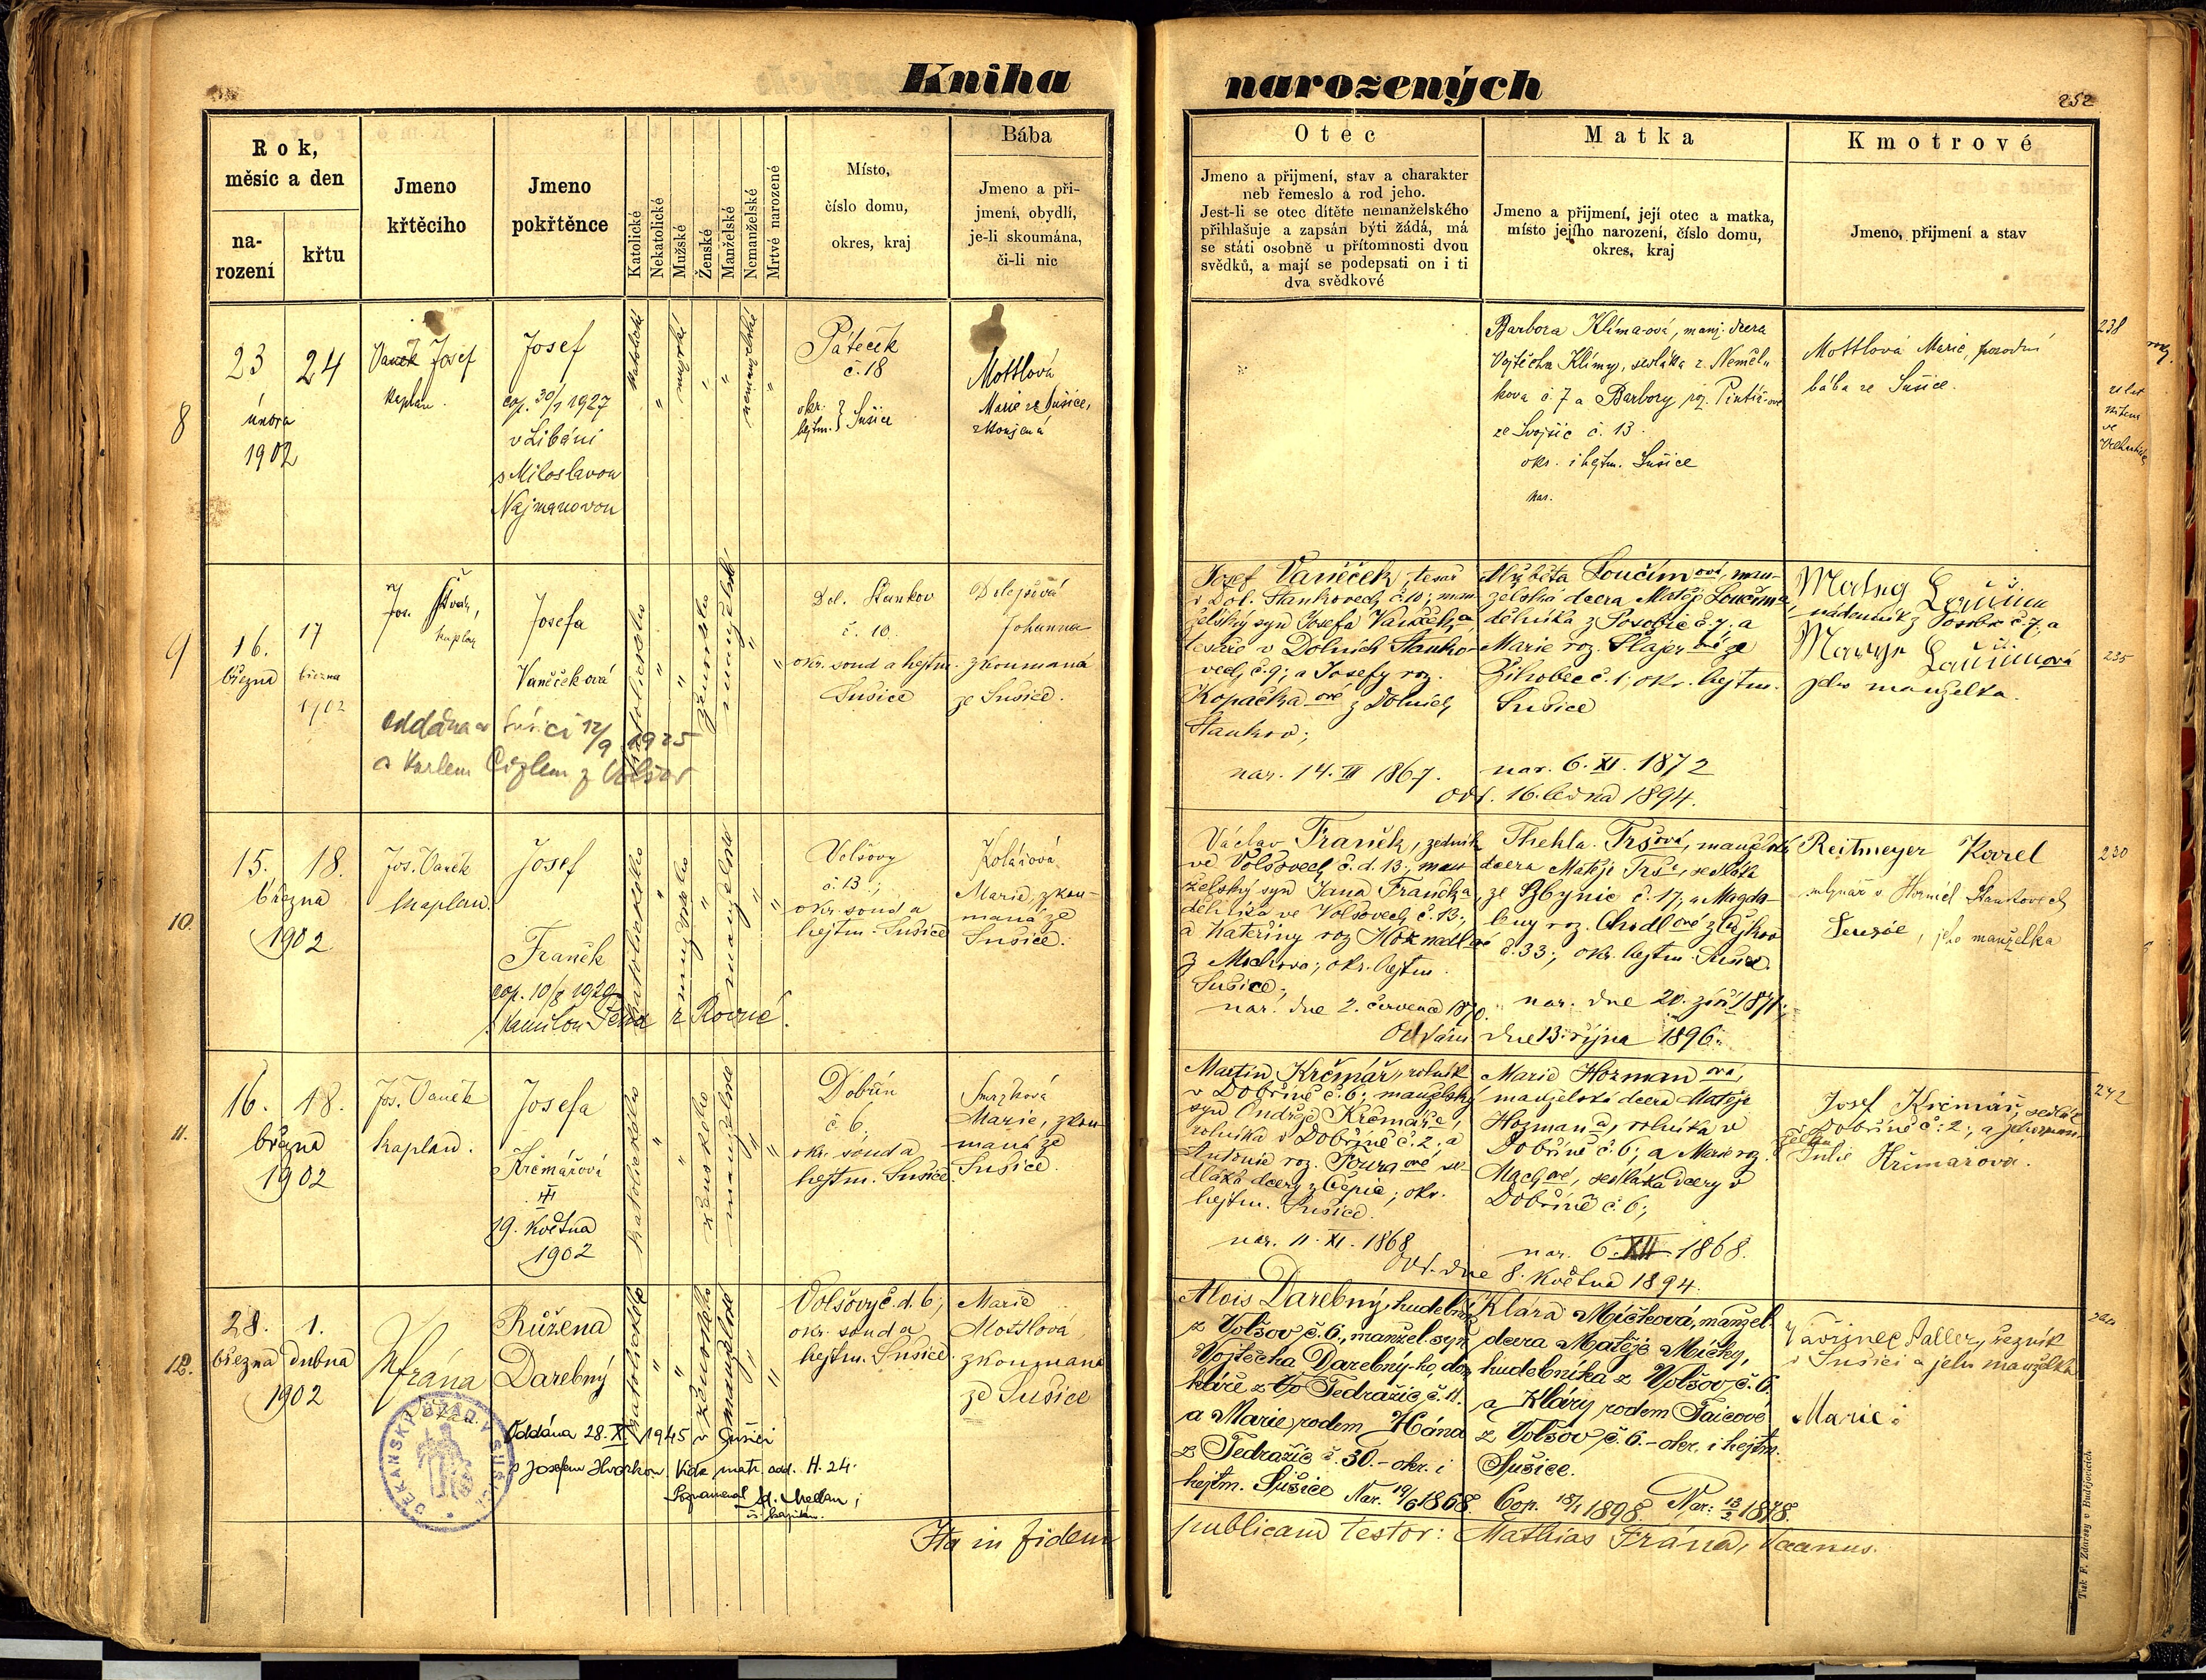 Kniha
narozených
252
Rok,
měsíc a den
na-
rození
křtu
Jmeno
křtěcího
Jmeno
pokřtěnce
Katolické
Nekatolické
Mužské
Ženské
Manželské
Nemanželské
Mrtvě narozené
Místo,
číslo domu,
okres, kraj
Bába
Jmeno a při-
jmení, obydlí,
je-li skoumána,
či-li nic
Otec
Jmeno a přijmení, stav a charakter
neb řemeslo a rod jeho.
Jest-li se otec dítěte nemanželského
přihlašuje a zapsán býti žádá, má
se státi osobně u přítomnosti dvou
svědků, a mají se podepsati on i ti
dva svědkové
Matka
Jmeno a přijmení, její otec a matka,
místo jejího narození, číslo domu,
okres, kraj
Kmotrové
Jmeno, přijmení a stav
8
23
února
1902
24
Vaněk Josef
kaplan.
Josef
cop. 30/1 1927
v Libáni
s Miloslavou
Najmanovou
katolické
"
mužské
"
"
nemanželské
"
Páteček
č. 18
okr.
hejtm. } Sušice
Mottlová
Marie ze Sušice,
zkoušená
Barbora Klíma-ová, manž. dcera
Vojtěcha Klímy, sedláka z Neměl-
kova č. 7 a Barbory roz.
ze Svojšic č. 13.
okr. i hejtm. Sušice
nar.
Mottlová Marie, porodní
bába ze Sušice.
238
9
16.
března
17
března
1902
Jos.
kaplan
Josefa
Vaněčková
oddána v Sušici 12/9 1925
s Karlem Cizlem z Volšov
katolického
"
"
ženského
manželské
"
"
Dol. Staňkov
č. 10.
okr. soud a hejtm.
Sušice
Dolejšová
Johanna
zkoumaná
ze Sušice.
Josef Vaněček, tesař
v Dol. Stankovech č. 10; man-
želský syn Josefa Vaněčka
tesaře v Dolních Stanko-
vech č. 9; a Josefy roz.
Kopačka ové z Dolních
Stankov;
nar. 14. III 1867.
Alžběta Loučím ová, man-
želská dcera Matěje Loučíma
dělníka z Posobic č. 7. a
Marie roz. Šlajer ové ze
Žihobec č. 1; okr. hejtm.
Sušice
nar. 6. XI. 1872
Odd. 16. ledna 1894.
Matěj Loučím
nádenník z Posobic č. 7. a
Marye Loučimová
jeho manželka.
235
10.
15.
března
1902
18.
Jos. Vaněk
kaplan.
Josef
Franěk
cop. 10/8 1929
z Rovné.
katolického
"
mužského
"
manželské
"
"
Volšovy
č. 13.;
okr. soud a
hejtm. Sušice
Kolářová
Marie, zkou-
maná ze
Sušice.
Václav Franěk, zedník
ve Volšovech č. d. 13; man-
želský syn Jana Fraňka
dělníka ve Volšovech č. 13.,
a Kateřiny roz.
z Mochova; okr. hejtm.
Sušice.
nar. dne 2. července 1870.
Thekla Tršová, manželská
dcera Matěje Trš-, sedláka
ze Zbynic č. 17; a Magda-
leny roz.
č. 33; okr. hejtm. Sušice.
nar. dne 20. září 1871;
Oddáni dne 13. října 1896.
Reitmeyer Karel
mlynář v Horních Staňkovech
Terezie, jeho manželka
230
11.
16.
března
1902
18.
Jos. Vaněk
kaplan.
Josefa
Krčmářová
19. května
1902
katolického
"
"
ženského
manželské
"
"
Dobřín
č. 6.
okr. soud a
hejtm. Sušice.
Smržková
Marie, zkou-
maná ze
Sušice.
Martin Krčmář, rolník
v Dobříně č. 6; manželský
syn Ondřeje Krčmáře,
rolníka v Dobříně č. 2. a
Antonie roz. ové se-
dláka dcery z Čepic; okr.
hejtm. Sušice.
nar. 11. XI. 1868
Marie Hozman ová,
manželská dcera Matěje
Hozman a, rolníka v
Dobříně č. 6; a Marie roz.
Mach ové, sedláka dcery v
Dobříně č. 6;
nar. 6. XII. 1868.
Odd. dne 8. května 1894.
Josef Krčmář, sedlák
v Dobříně č. 2; a jeho man-
želka
Julie Krčmářová.
242
12.
28.
března
1902
1.
dubna
MFrána
děkan.
DĚKANSKÝ ÚŘAD V SUŠICI
Růžena
Darebný
Oddána 28. X. 1945 v Sušici
s Josefem Hvorkou. Vide matr. odd. H. 24.
Poznamenal
katolického
"
"
ženského
manželské
"
"
Volšovy č. d. 6;
okr. soud a
hejtm. Sušice.
Marie
Mottlová
zkoumaná
ze Sušice
Alois Darebný, hudebník
z Volšov č. 6; manžel. syn
Vojtěcha Darebný-ho, dom-
káře z Tedražic, č. 11.
a Marie, rodem Hána
z Tedražic č. 30. - okr. i
hejtm. Sušice Nar. 19/6 1868.
Klára Míčková, manžel.
dcera Matěje Míčky,
hudebníka z Volšov, č. 6.
a Kláry rodem Faicové
z Volšov, č. 6. - okr. i hejtm.
Sušice.
Cop. 18/1 1898. Nar: 13/2 1878.
Vavřinec Saller, řezník
v Sušici a jeho manželka
Marie.
Ita in fidem publicam testor: Mathias Frána, decanus.
Tisk F. Zdarssy v Budějovicích